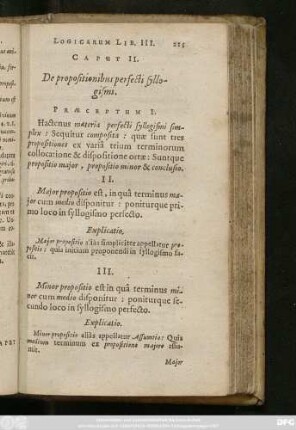 LOGICARUM LIB. III. 225
CAPUT II.
De propositionibus perfecti syllo-
gismi.
PRÆCEPTUM I.
Hactenus materia perfecti syllogismi sim-
plex: Sequitur composita: quæ sunt tres
propositiones ex variâ trium terminorum
collocatione & dispositione ortæ: Suntque
propositio major, propositio minor & conclusio.
II.
Major propositio est, in quâ terminus ma-
jor cum medio disponitur: poniturque pri-
mo loco in syllogismo perfecto.
Explicatio.
Major propositio aliàs simpliciter appellatur pro-
positio: quia initium proponendi in syllogismo fa-
cit.
III.
Minor propositio est in quâ terminus mi-
nor cum medio disponitur: poniturque se-
cundo loco in syllogismo perfecto.
Explicatio.
Minor propositio aliàs appellatur Assumtio: Quia
medium terminum ex propositione majore assu-
mit.
Major